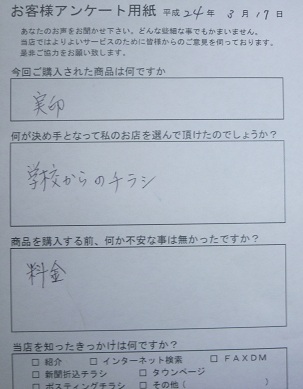 お客様アンケート用紙 平成 24年 3月17日
あなたのお声をお聞かせ下さい。どんな些細な事でもかまいません。
当店ではよりよいサービスのために皆様からのご意見を伺っております。
是非ご協力をお願い致します。
今回ご購入された商品は何ですか
実印
何が決め手となって私のお店を選んで頂けたのでしょうか？
学校からのチラシ
商品を購入する前、何か不安な事は無かったですか？
料金
当店を知ったきっかけは何ですか？
□ 紹介 □ インターネット検索 □ FAXDM
□ 新聞折込チラシ □ タウンページ
□ ポスティングチラシ □ その他（ ）